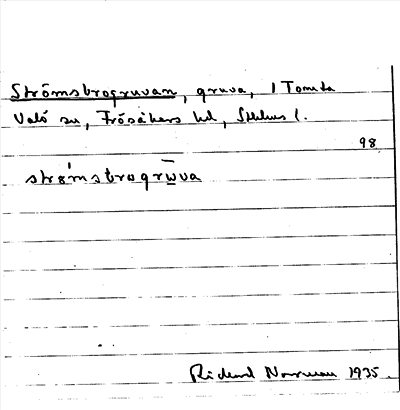 Strömsbrogruvan, gruva, i Tomta
Valö sn, Frösåkers hd, Sthlms l.
98
strömsbrogrūva
Rickard Norrman 1935.